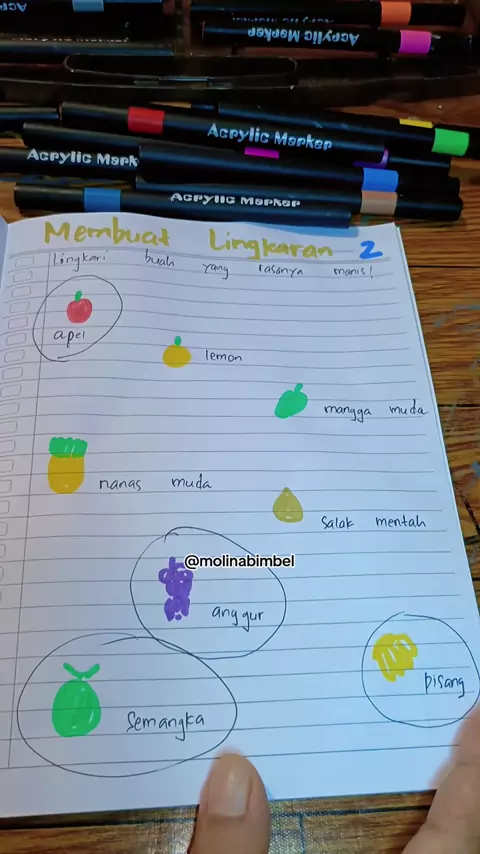 Acrylic Marker
Acrylic Marker
Acrylic Marker
Acrylic Mark
Acrylic Marker
Membuat Lingkaran 2
lingkari buah yang rasanya manis!
apel
lemon
mangga muda
nanas muda
Salak mentah
@molinabimbel
anggur
pisang
Semangka